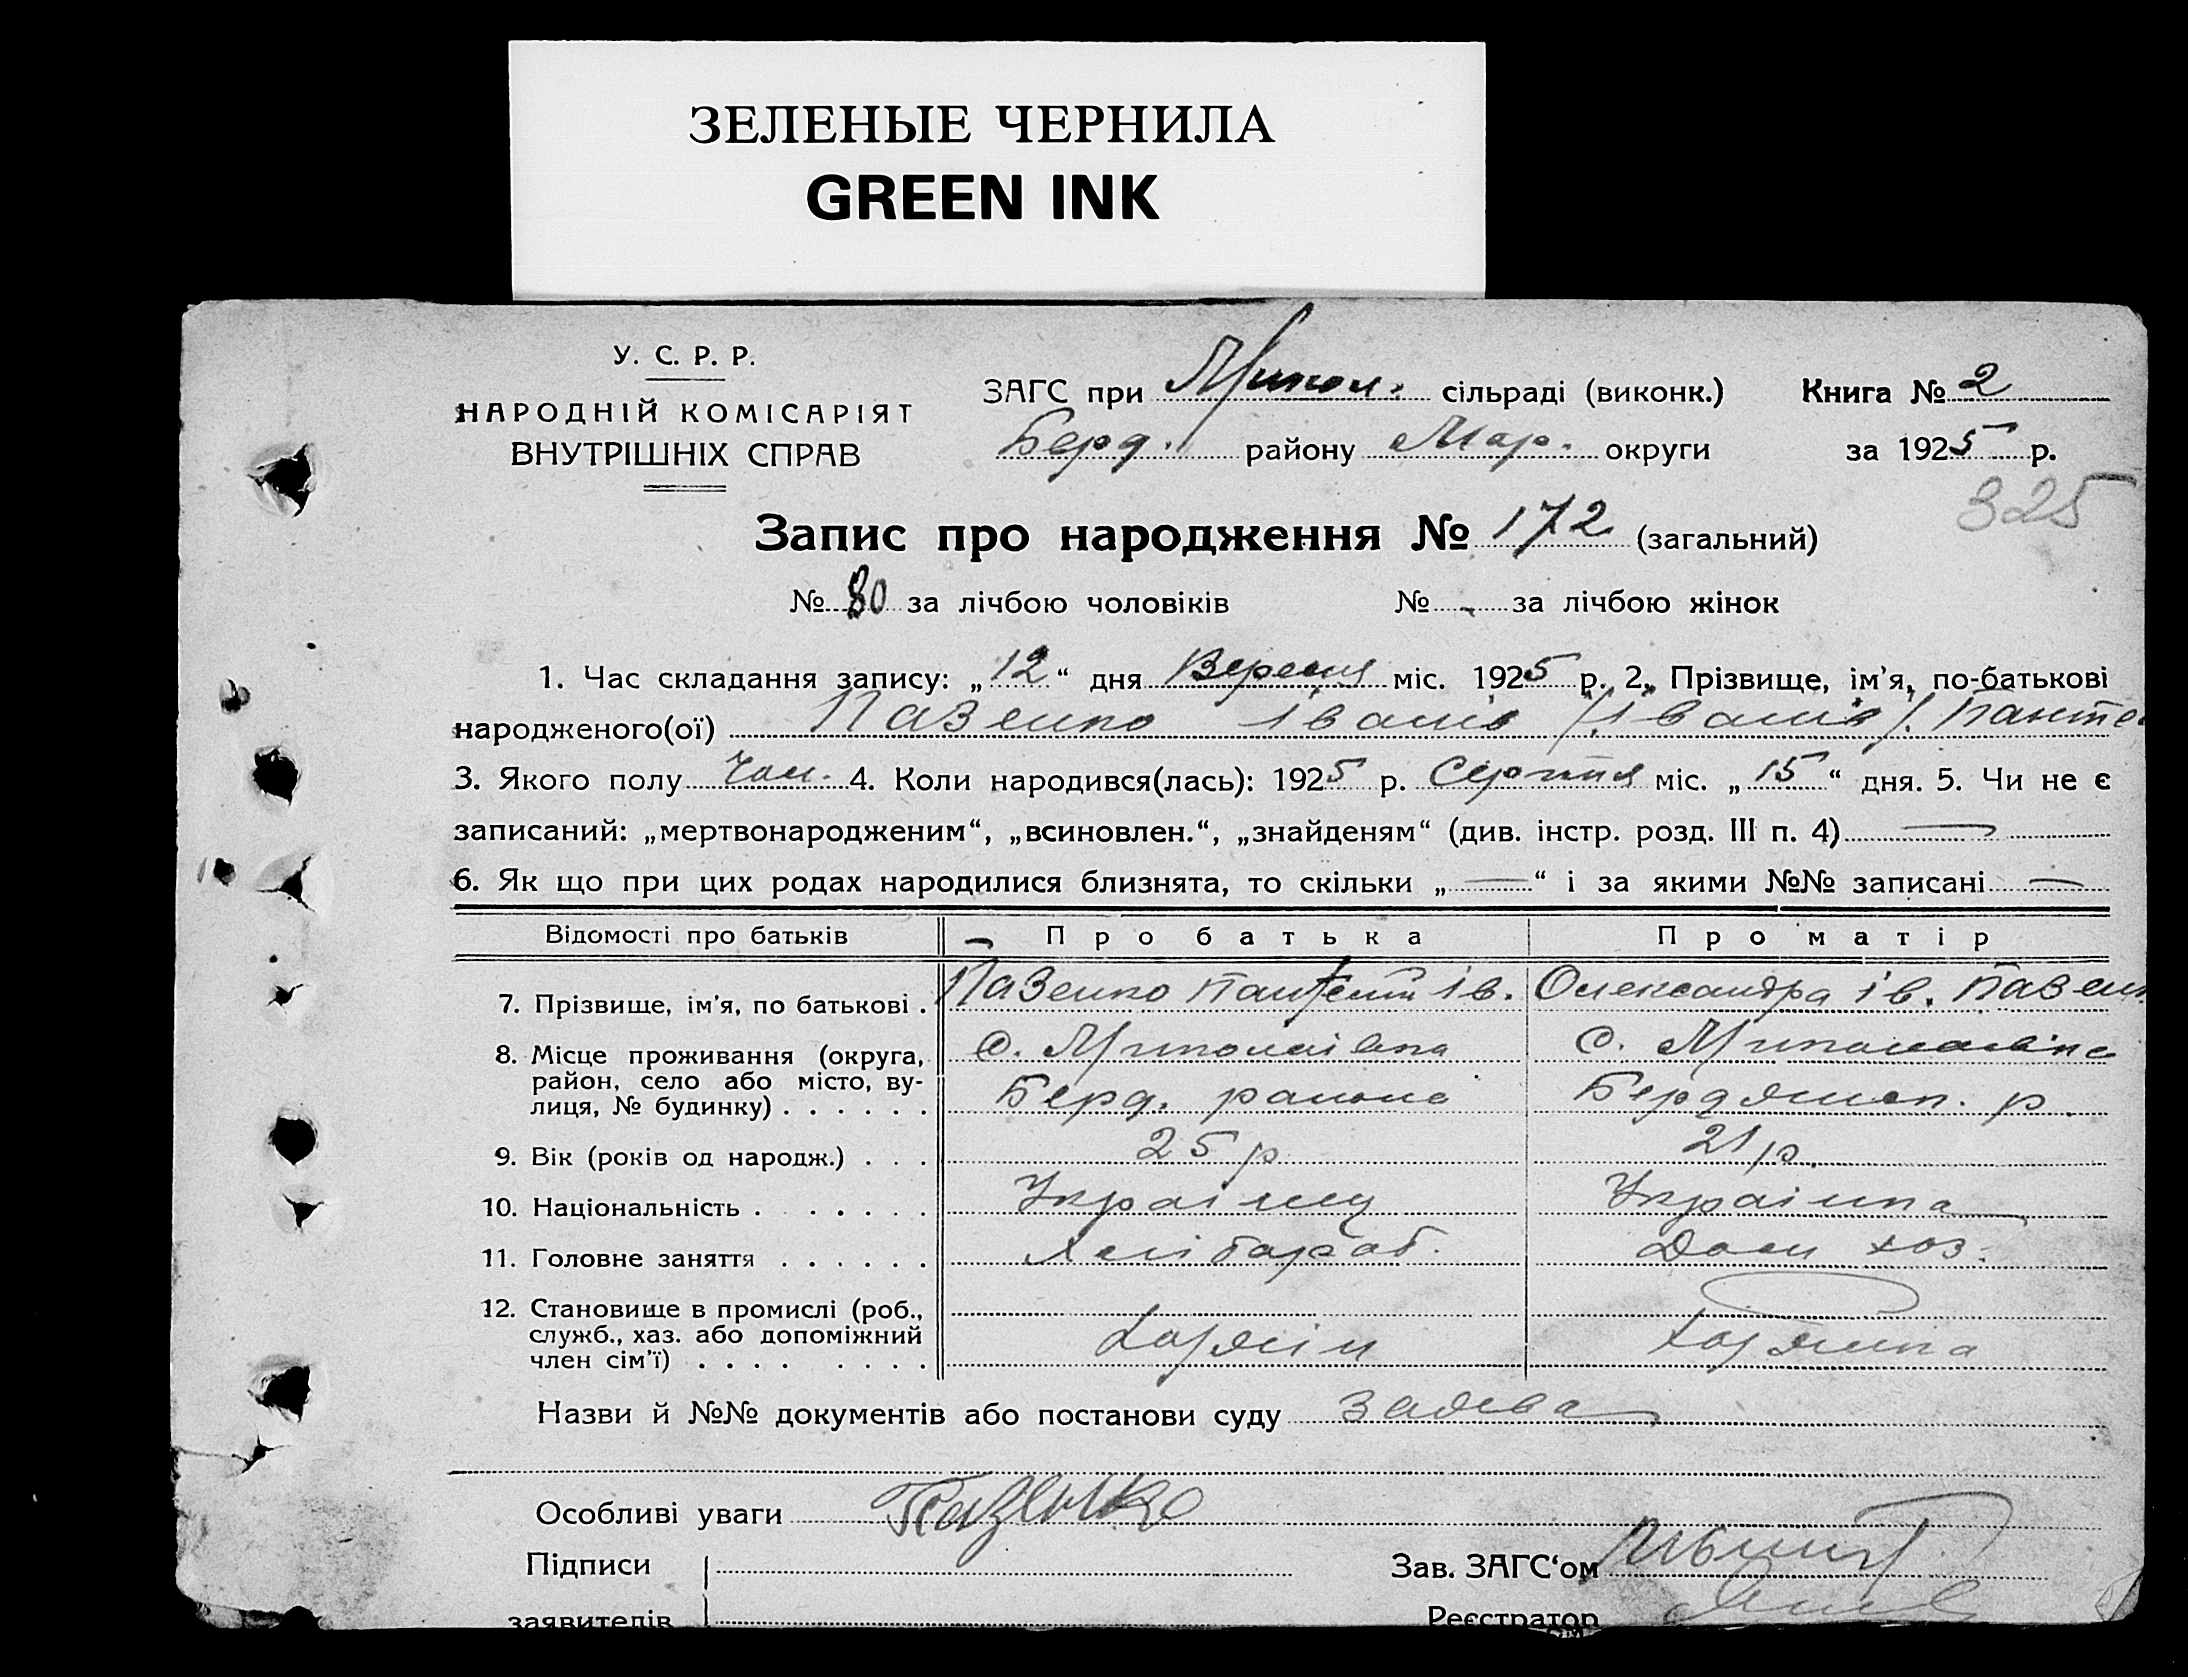 ЗЕЛЕНЫЕ ЧЕРНИЛА
GREEN INK
У. С. Р. Р.
НАРОДНІЙ КОМІСАРІЯТ
ВНУТРІШНІХ СПРАВ
ЗАГС при Микол. сільраді (виконк.) Книга № 2
Берд. району Мар. округи за 1925 р.
325
Запис про народження № 172 (загальний)
№ 80 за лічбою чоловіків № - за лічбою жінок
1. Час складання запису: „12“ дня Вересня міс. 1925 р. 2. Прізвище, ім'я, по-батькові
народженого(ої) Пазенко Іваніз /Іваніз/. Панте
3. Якого полу Чол. 4. Коли народився(лась): 1925 р. Серпня міс. „15“ дня. 5. Чи не є
записаний: „мертвонародженим“, „всиновлен.“, „знайденям“ (див. інстр. розд. III п. 4) —
6. Як що при цих родах народилися близнята, то скільки „—“ і за якими №№ записані —
Відомості про батьків Про батька Про матір
7. Прізвище, ім'я, по батькові . Пазенко Пантелій Ів. Олександра Ів. Пазен
8. Місце проживання (округа, с. Миколаївка с. Миколаївка
район, село або місто, ву- Берд. району Бердянск. р.
лиця, № будинку) . . . . . .
9. Вік (років од народж.) . . . 25 р 21 р.
10. Національність . . . . . . Українц Українка
11. Головне заняття . . . . . . Хлібороб. Дом хоз.
12. Становище в промислі (роб.,
служб., хаз. або допоміжний
член сім'ї) . . . . . . . . Хазяїн Хазяйка
Назви й №№ документів або постанови суду Заява
Особливі уваги Пазенко
Підписи Зав. ЗАГС‘ом
заявителів Реєстратор